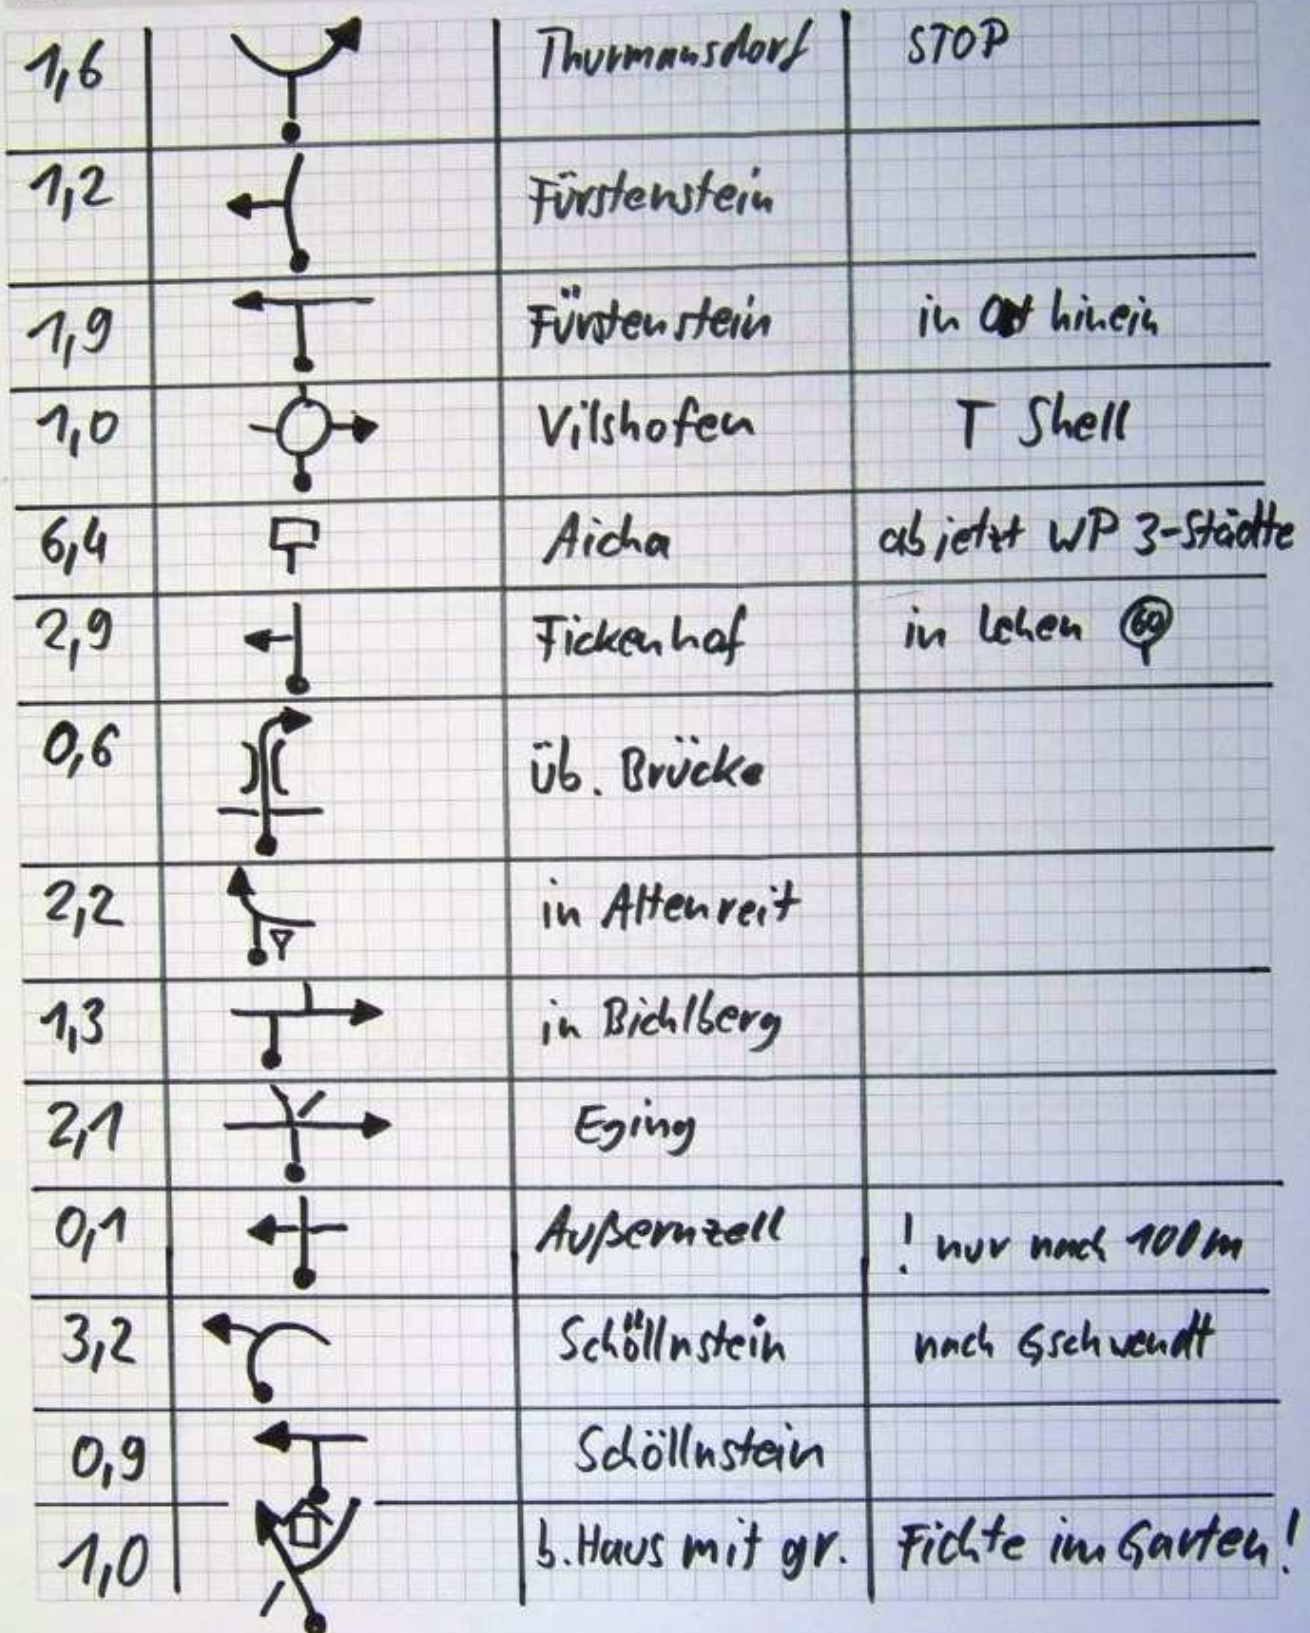 1,6 Thurmansdorf STOP
1,2 Fürstenstein
1,9 Fürstenstein in Ort hinein
1,0 Vilshofen T Shell
6,4 Aicha ab jetzt WP 3-Städte
2,9 Fickenhof in Lehen 60
0,6 üb. Brücke
2,2 in Altenreit
1,3 in Bichlberg
2,1 Eging
0,1 Außernzell ! nur nach 100m
3,2 Schöllnstein nach Gschwendt
0,9 Schöllnstein
1,0 b. Haus mit gr. Fichte im Garten!